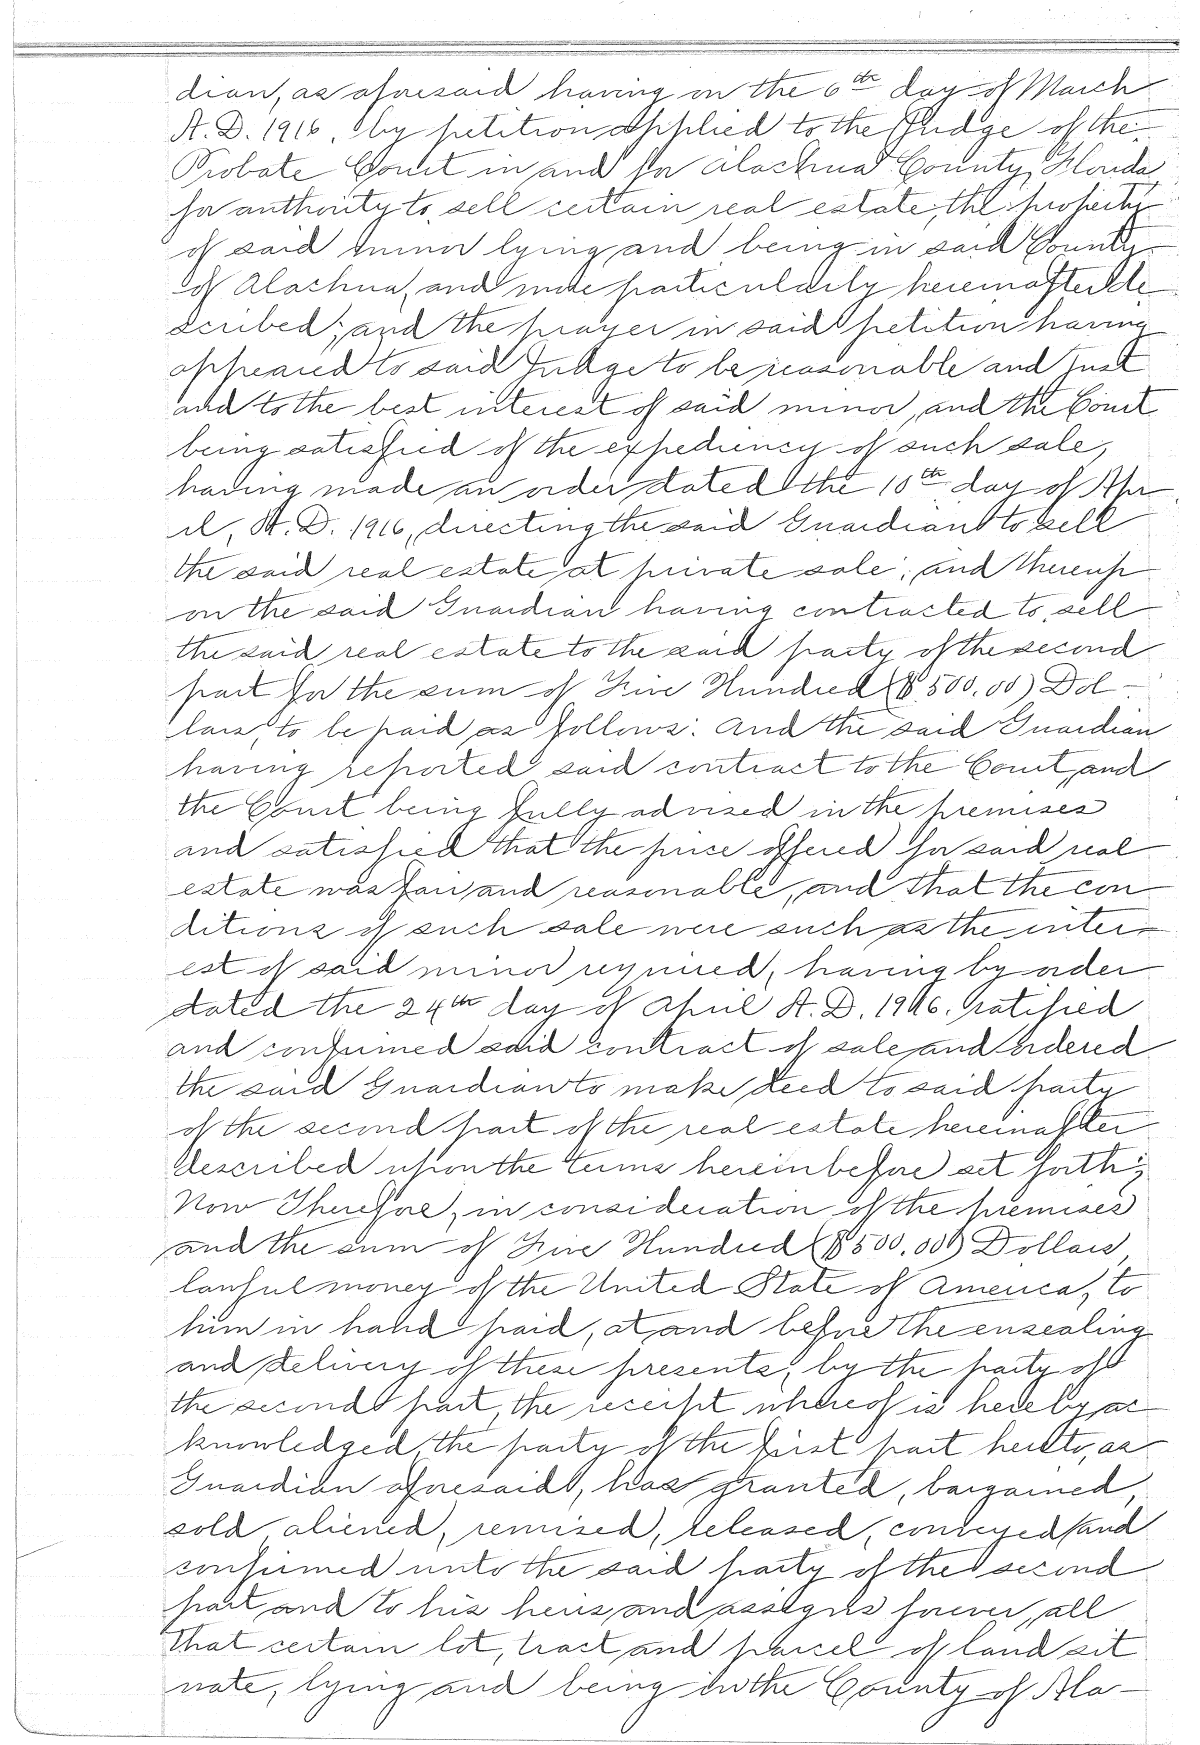 dian, as aforesaid having on the 6th day of March
A. D. 1916, by petition applied to the Judge of the
Probate Court in and for Alachua County, Florida
for authority to sell certain real estate, the property
of said minor lying and being in said County
of Alachua, and more particularily hereinafter de
scribed; and the prayer in said petition having
appeared to said Judge to be reasonable and just
and to the best interest of said minor, and the Court
being satisfied of the expediency of such sale,
having made an order dated the 10th day of Apr
il, A. D. 1916, directing the said Guardian to sell
the said real estate at private sale, and thereup
on the said Guardian having contracted to sell
the said real estate to the said party of the second
part for the sum of Five Hundred ($500.00) Dol-
lars, to be paid as follows: And the said Guardian
having reported said contract to the Court, and
the Court being fully advised in the premises
and satisfied that the price offered for said real
estate was fair and reasonable, and that the con
ditions of such sale were such as the inter-
est of said minor required, having by order
dated the 24th day of April A. D. 1916. ratified
and confirmed said contract of sale and ordered
the said Guardian to make deed to said party
of the second part of the real estate hereinafter
described upon the terms hereinbefore set forth;
Now Therefore, in consideration of the premises
and the sum of Five Hundred ($500.00) Dollars,
lawful money of the United State of America, to
him in hand paid, at and before the ensealing
and delivery of these presents, by the party of
the second part, the receipt whereof is hereby ac
knowledged, the party of the first part hereto, as
Guardian aforesaid, has granted, bargained,
sold, aliened, remised, released, conveyed and
confirmed unto the said party of the second
part and to his heirs and assigns forever, all
that certain lot, tract and parcel of land sit
uate, lying and being in the County of Ala-